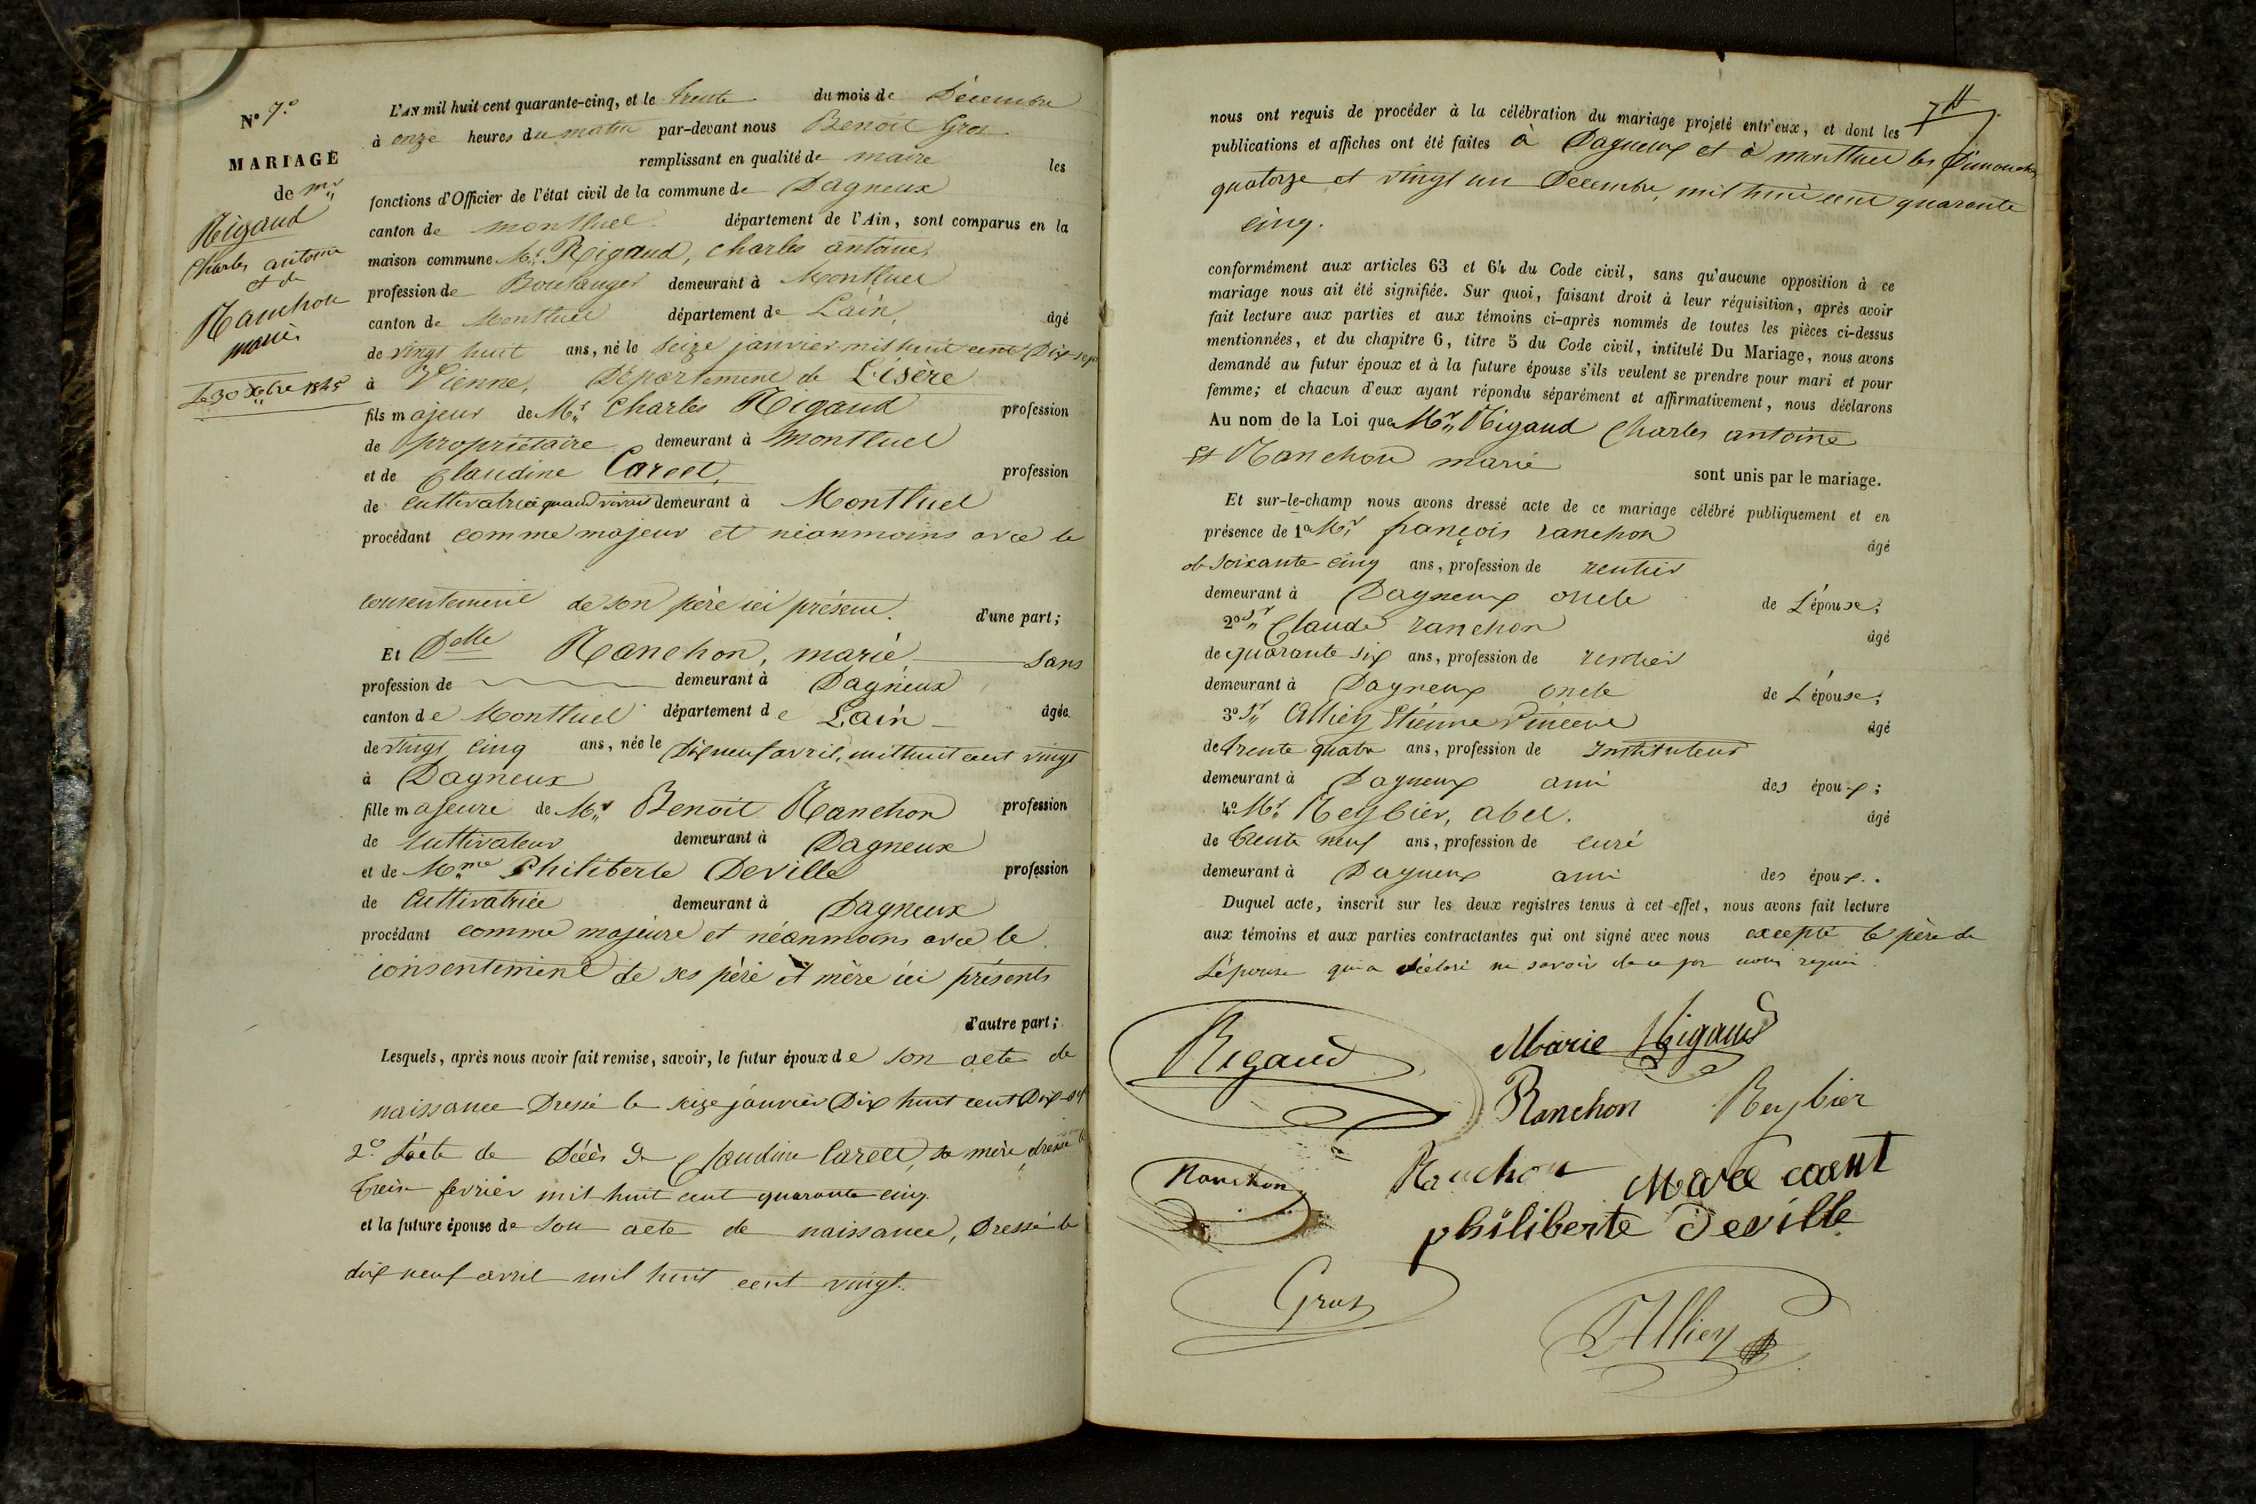 N° 7.°
MARIAGE
de mr
Rigaud
Charles antoine
et de
Ranchon
marie.
Le 30 Xbre 1845
L'AN mil huit cent quarante-cinq, et le trente du mois de Décembre
à onze heures du matin par-devant nous Benoit Gros
remplissant en qualité de maire les
fonctions d'Officier de l'état civil de la commune de Dagneux
canton de montluel département de l'Ain, sont comparus en la
maison commune Mr Rigaud, charles antoine,
profession de Boulanger demeurant à Montluel
canton de Montluel département de Lain, âgé
de vingt huit ans, né le seize janvier mil huit cent Dix-sept
à Vienne, Département de L'isère
fils majeur de Mr Charles Rigaud profession
de propriétaire demeurant à montluel
et de Claudine Caroet, profession
de cultivatrice quand vivait demeurant à Montluel
procédant comme majeur et néanmoins avec le
consentement de son père ici présent. d'une part;
Et Delle Ranchon, marie, sans
profession de demeurant à Dagneux
canton de Montluel département de Lain âgée
de vingt cinq ans, née le Dix neuf avril, mil huit cent vingt
à Dagneux
fille majeure de Mr Benoit Ranchon profession
de cultivateur demeurant à Dagneux
et de Mme Philiberte Deville profession
de cultivatrice demeurant à Dagneux
procédant comme majeure et néanmoins avec le
consentement de ses père et mère ici présents
d'autre part;
Lesquels, après nous avoir fait remise, savoir, le futur époux de son acte de
naissance Dressé le seize janvier Dix huit cent Dix-sept
2° L'acte de Décès de Claudine Caroet, sa mère, dressé le
treize fevrier mil huit cent quarante cinq.
et la future épouse de son acte de naissance, Dressé le
dix neuf avril mil huit cent vingt.
nous ont requis de procéder à la célébration du mariage projeté entr'eux, et dont les
publications et affiches ont été faites à Dagneux et à montluel les Dimanches
quatorze et vingt un Décembre, mil huit cent quarante
cinq.
conformément aux articles 63 et 64 du Code civil, sans qu'aucune opposition à ce
mariage nous ait été signifiée. Sur quoi, faisant droit à leur réquisition, après avoir
fait lecture aux parties et aux témoins ci-après nommés de toutes les pièces ci-dessus
mentionnées, et du chapitre 6, titre 5 du Code civil, intitulé Du Mariage, nous avons
demandé au futur époux et à la future épouse s'ils veulent se prendre pour mari et pour
femme; et chacun d'eux ayant répondu séparément et affirmativement, nous déclarons
Au nom de la Loi que Mr Rigaud Charles antoine
et Ranchon marie sont unis par le mariage.
Et sur-le-champ nous avons dressé acte de ce mariage célébré publiquement et en
présence de 1° Mr françois ranchon âgé
de soixante cinq ans, profession de rentier
demeurant à Dagneux oncle de L'épouse;
2° Sr Claude ranchon âgé
de quarante six ans, profession de rentier
demeurant à Dagneux oncle de L'épouse;
3° Sr Alliey Etienne Vincent âgé
de trente quatre ans, profession de Instituteur
demeurant à Dagneux ami des époux;
4° Mr Reybier, abel. âgé
de trente neuf ans, profession de curé
demeurant à Dagneux ami des époux.
Duquel acte, inscrit sur les deux registres tenus à cet effet, nous avons fait lecture
aux témoins et aux parties contractantes qui ont signé avec nous excepté le père de
L'épouse qui a déclaré ne savoir de ce par nous requis.
Rigaud
Marie Rigaud
Ranchon Reybier
Ranchon
Ranchon
philiberte deville
Gros
Alliey